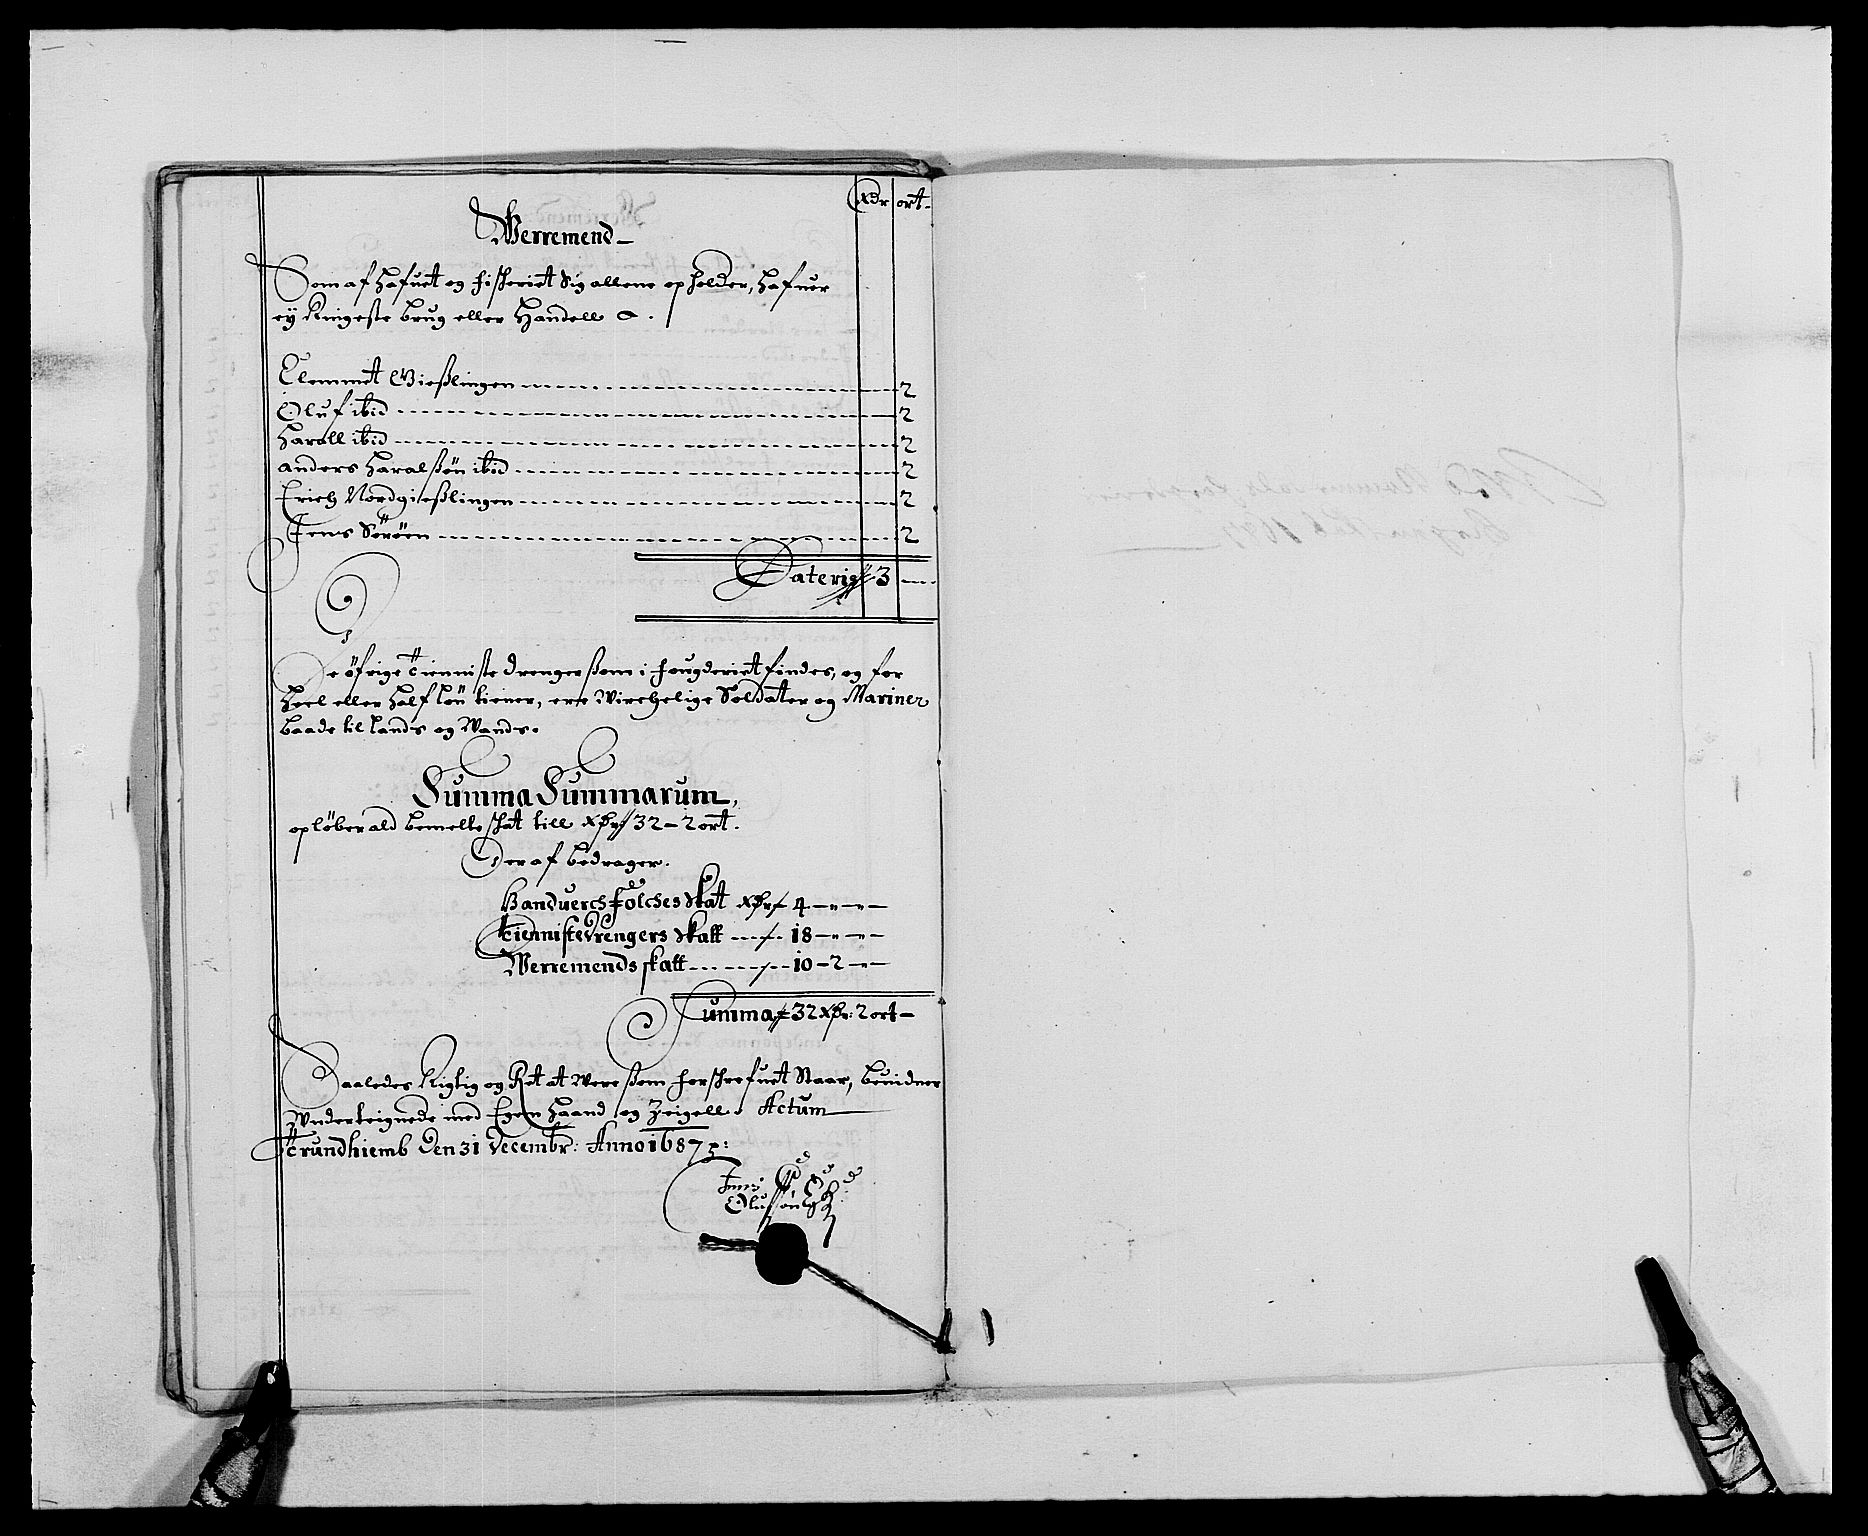 Rdr ort
Werremend
Som af hafuet og fischeriet Sig allene opholder, hafuer
ey Ringeste brug eller Handell &.
Clemmet Gießlingen 2
Oluf ibid 2
Harall ibid 2
anders Haralßön ibid 2
Erich Nordgießlingen 2
Jens Söröen 2
Lateris 3
De öfrige Tienniste drenger ßom i fougderiet findes, og for
Heel eller Half lön tiener, ere Wirchelige Soldater og Mariner
baade til lands og Wands.
Summa Summarum,
oplöber ald bemelte schat till Rdr 32 - 2 ort.
Der af bedrager.
Handuerchsfolches skat Rdr 4
Tiennistedrengers skatt 18
Werremends skatt 10 - 2
Summa 32 Rdr: 2 ort
Saaledes Rigtig og Ret at Were ßom forschrefuet Staar, beuidner
Vnderteignede med Egen haand og Zeigell. Actum
Trundhiemb den 31 decembr: Anno 1687
Jens
Olufsön